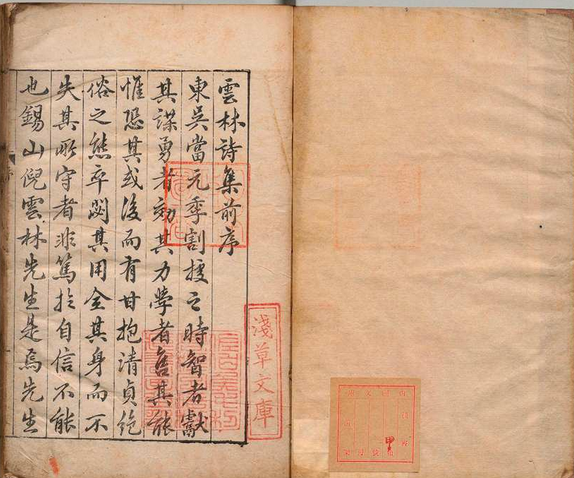 雲林詩集前序
東吳當元季割據之時智者獻
其謀勇者効其力學者售其能
惟恐其或後而有甘抱清貞絕
俗之態卒閟其用全其身而不
失其所守者非篤於自信不能
也錫山倪雲林先生是焉先生
淺草文庫